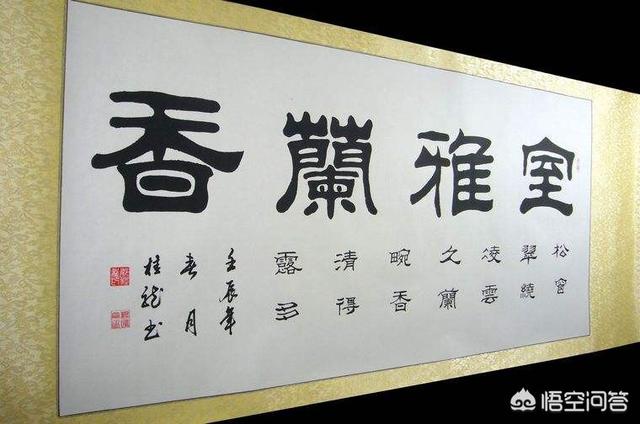 室雅蘭香
松窗
翠繞
凌雲
久蘭
畹香
清得
露多
壬辰年
春月
桂龙书
悟空问答